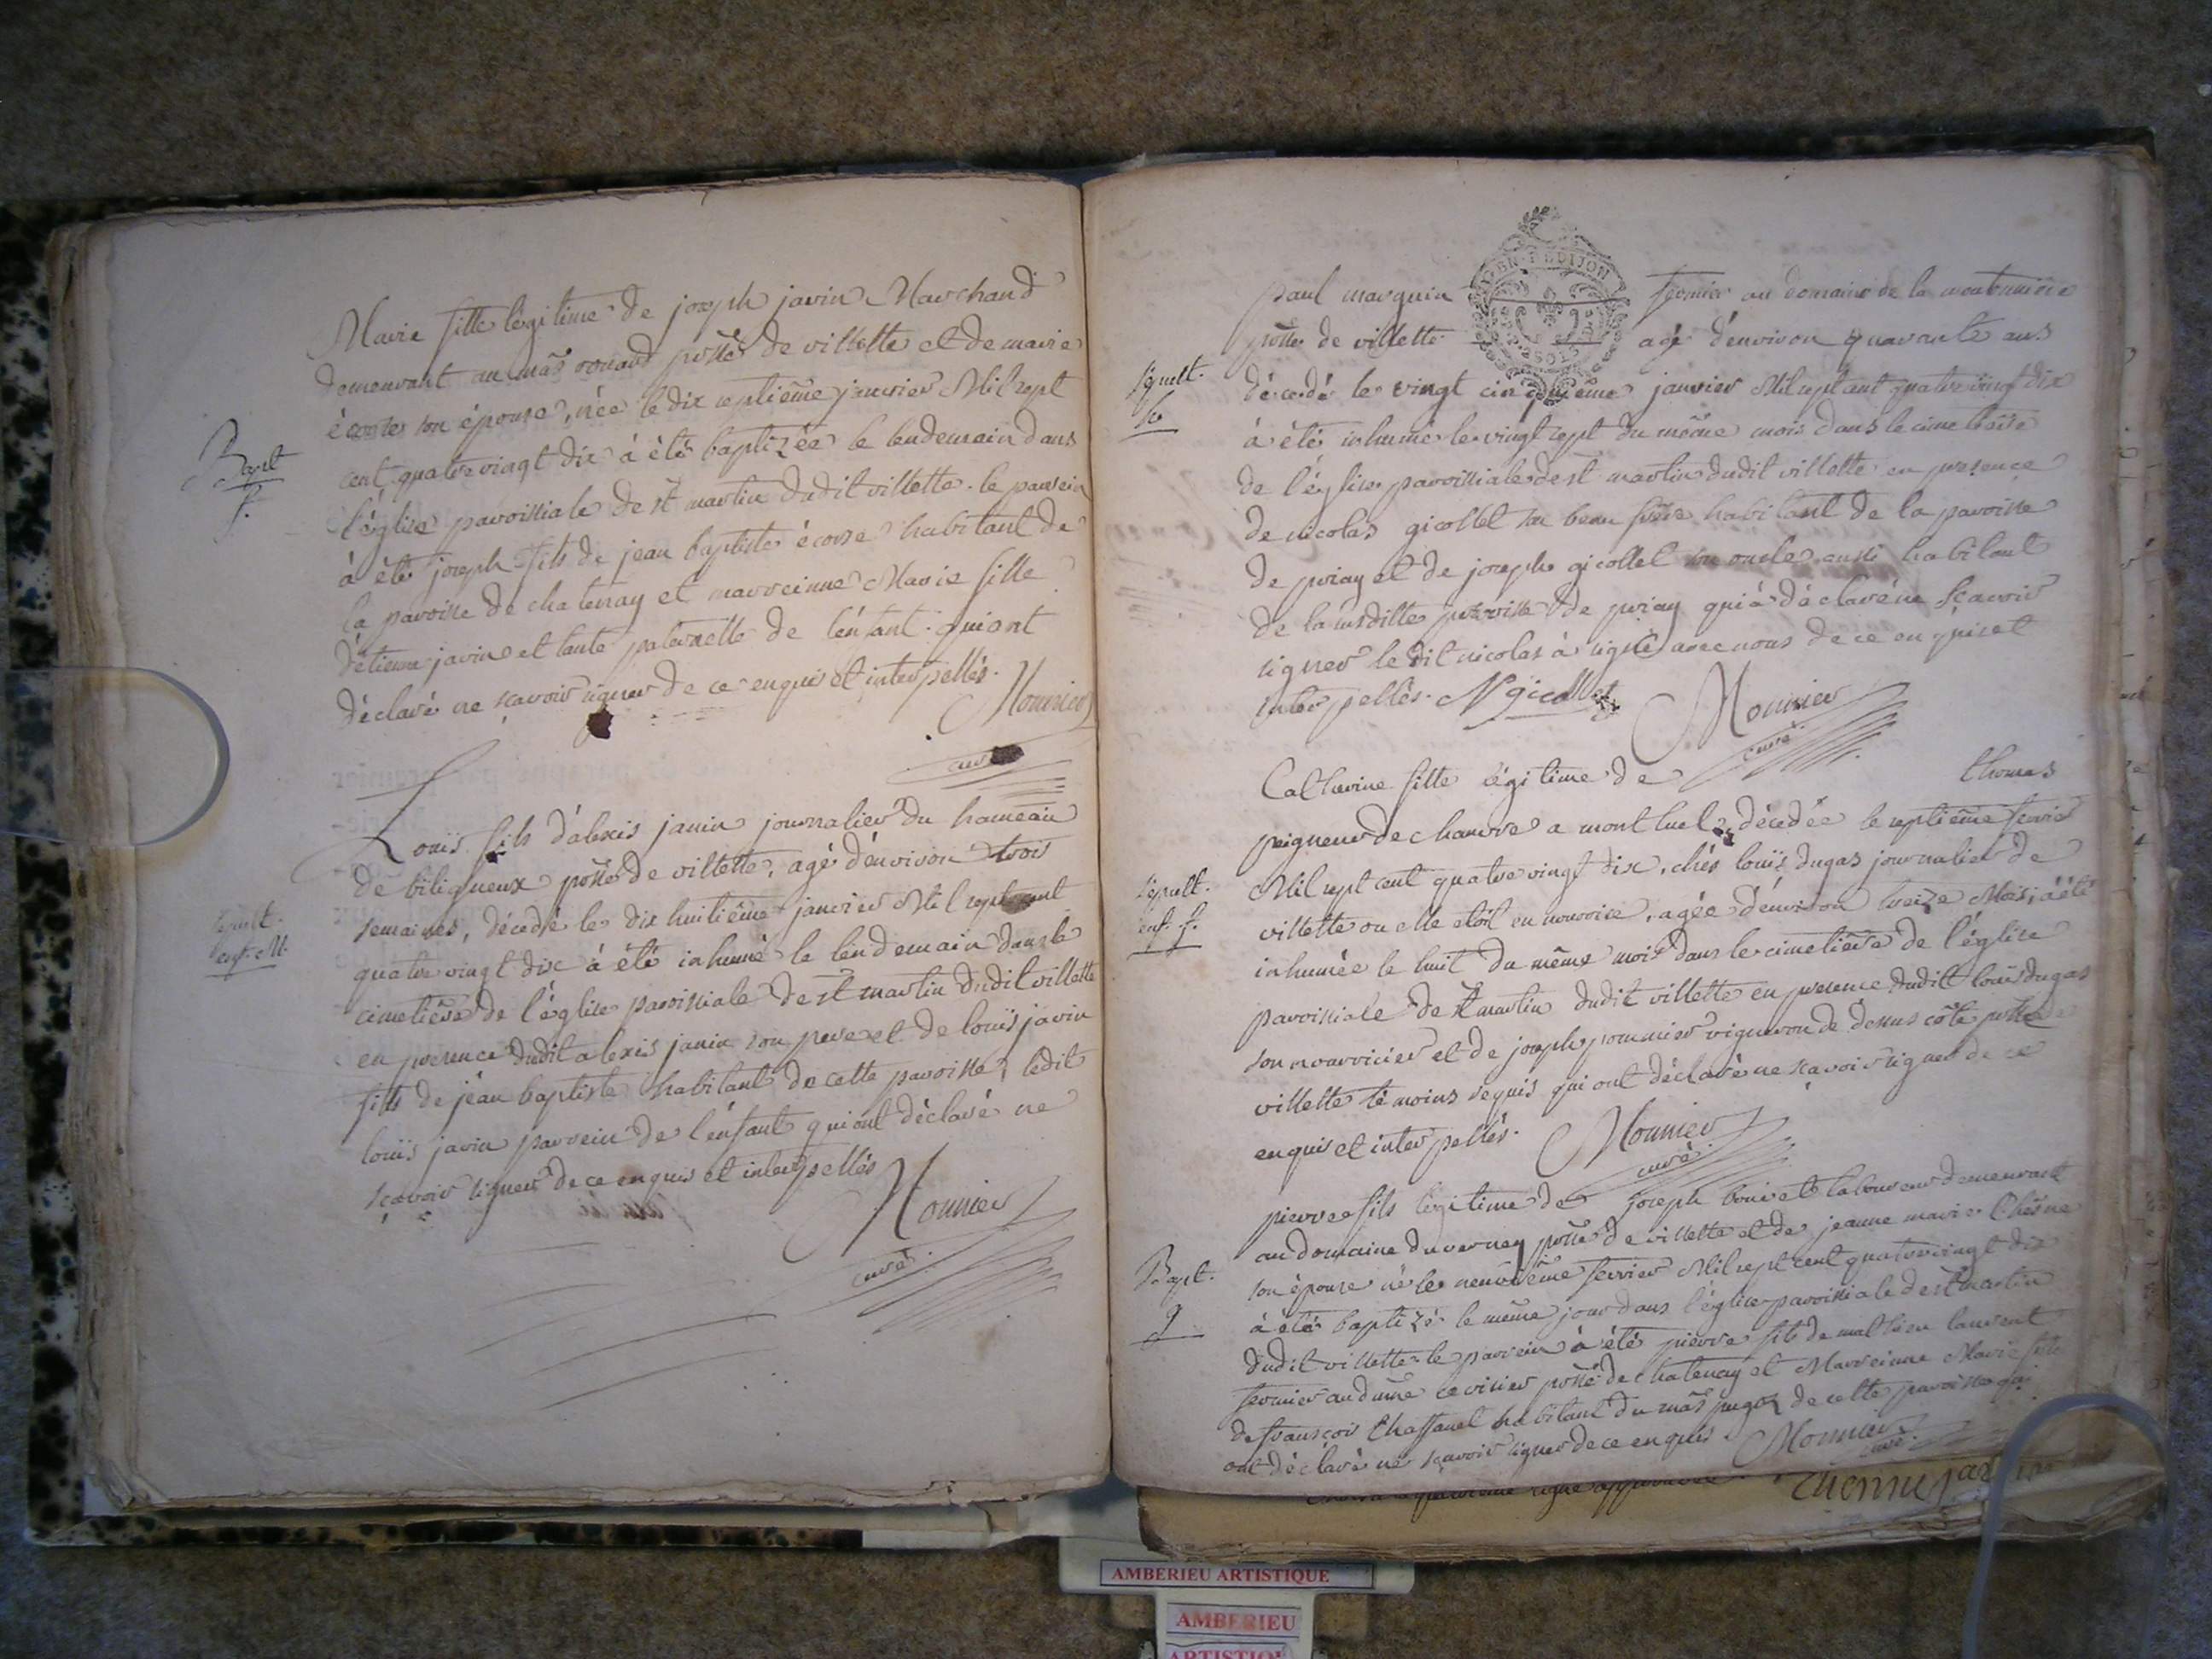 Bapt
f.
Marie fille légitime de joseph javin Marchand
demeurant au mas ronard psse de villette et de marie
écosse son épouse, née le dix septième janvier Mil sept
cent quatre vingt dix à été baptizée le lendemain dans
l'église paroissiale de st martin dudit villette. le parrein
à été joseph fils de jean baptiste écosse habitant de
la paroisse de chatenay et marreinne Marie fille
d'étienne javin et tante paternelle de l'enfant. qui ont
déclaré ne sçavoir signer de ce enquis et interpellés.
Monnier
curé
sepult.
enf. M.
Louis fils d'alexis janin journalier du hameau
de biligneux psse de villette, agé d'environ trois
semaines, décédé le dix huitième janvier Mil sept cent
quatre vingt dix à été inhumé le lendemain dans le
cimetière de l'église paroissiale de st martin dudit villette
en presence dudit alexis janin son pere et de louis javin
fils de jean baptiste habitant de cette paroisse, ledit
louis javin parrein de l'enfant qui ont déclaré ne
sçavoir signer de ce enquis et interpellés
Monnier
curé
GEN. DE DIJON
sepult.
h
paul marguin fermier au domaine de la
psse de villette agé d'environ quarante ans
décedé le vingt cinquième janvier Mil sept cent quatre vingt dix
à été inhumé le vingt sept du même mois dans le cimetière
de l'église paroissiale de st martin dudit villette en presence
de nicolas gicollet son beau frère habitant de la paroisse
de priay et de joseph gicollet son oncle aussi habitant
de la susditte paroisse de priay qui à déclaré ne sçavoir
signer le dit nicolas à signé avec nous de ce enquis et
interpellés. N gicollet
Monnier
curé
sepult.
enf. f.
Catherine fille légitime de thomas
peigneur de chanvre a montluel, décédée le septième fevrier
Mil sept cent quatre vingt dix, chés louis dugas journalier de
villette ou elle etoit en nourrice, agée d'environ treize Mois, à été
inhumée le huit du même mois dans le cimetière de l'église
paroissiale de st martin dudit villette en presence dudit louis dugas
son nourricier et de joseph pommier vigneron de dessus côte psse de
villette témoins requis qui ont déclaré ne sçavoir signer de ce
enquis et interpellés.
Monnier
curé
Bapt.
g
pierre fils légitime de joseph bouvet laboureur demeurant
au domaine du verney psse de villette et de jeanne marie Chêsne
son épouse né le neuvième fevrier Mil sept cent quatre vingt dix
à été baptizé le même jour dans l'église paroissiale de st martin
dudit villette le parrein à été pierre fils de mathieu laurent
fermier au dme cerisier psse de chatenay et Marreinne Marie fille
de françois Chassanet habitant du mas pugoz de cette paroisse qui
ont déclaré ne sçavoir signer de ce enquis
Monnier
curé
AMBERIEU ARTISTIQUE
AMBERIEU
ARTISTIQUE